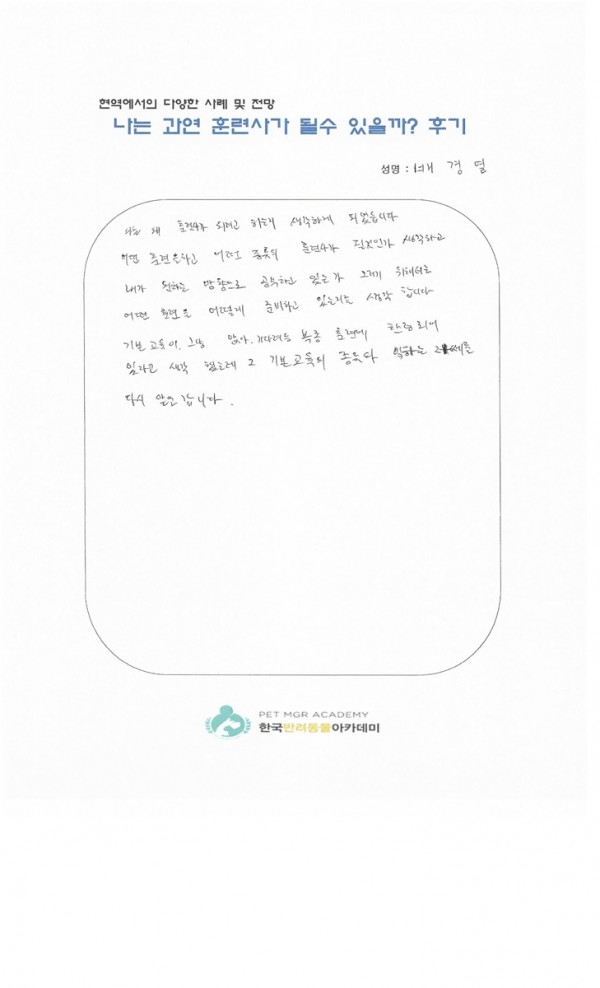 현역에서의 다양한 사례 및 전망
나는 과연 훈련사가 될수 있을까? 후기
성명 : 배 경 열
나는 왜 훈련사가 되려고 하는지 생각하게 되었습니다
어떤 훈련을하고 어떤 종류의 훈련사가 될것인가 생각하고
내가 원하는 방향으로 공부하고 있는가 그러기 위해서는
어떤 훈련을 어떻게 준비하고 있는지를 생각 합니다
기본교육이. 그냥 앉아. 기다려등 복종 훈련에
일라고 생각 했는데 그 기본교육의 중요다
다시 합니다.
PET MGR ACADEMY
한국반려동물아카데미